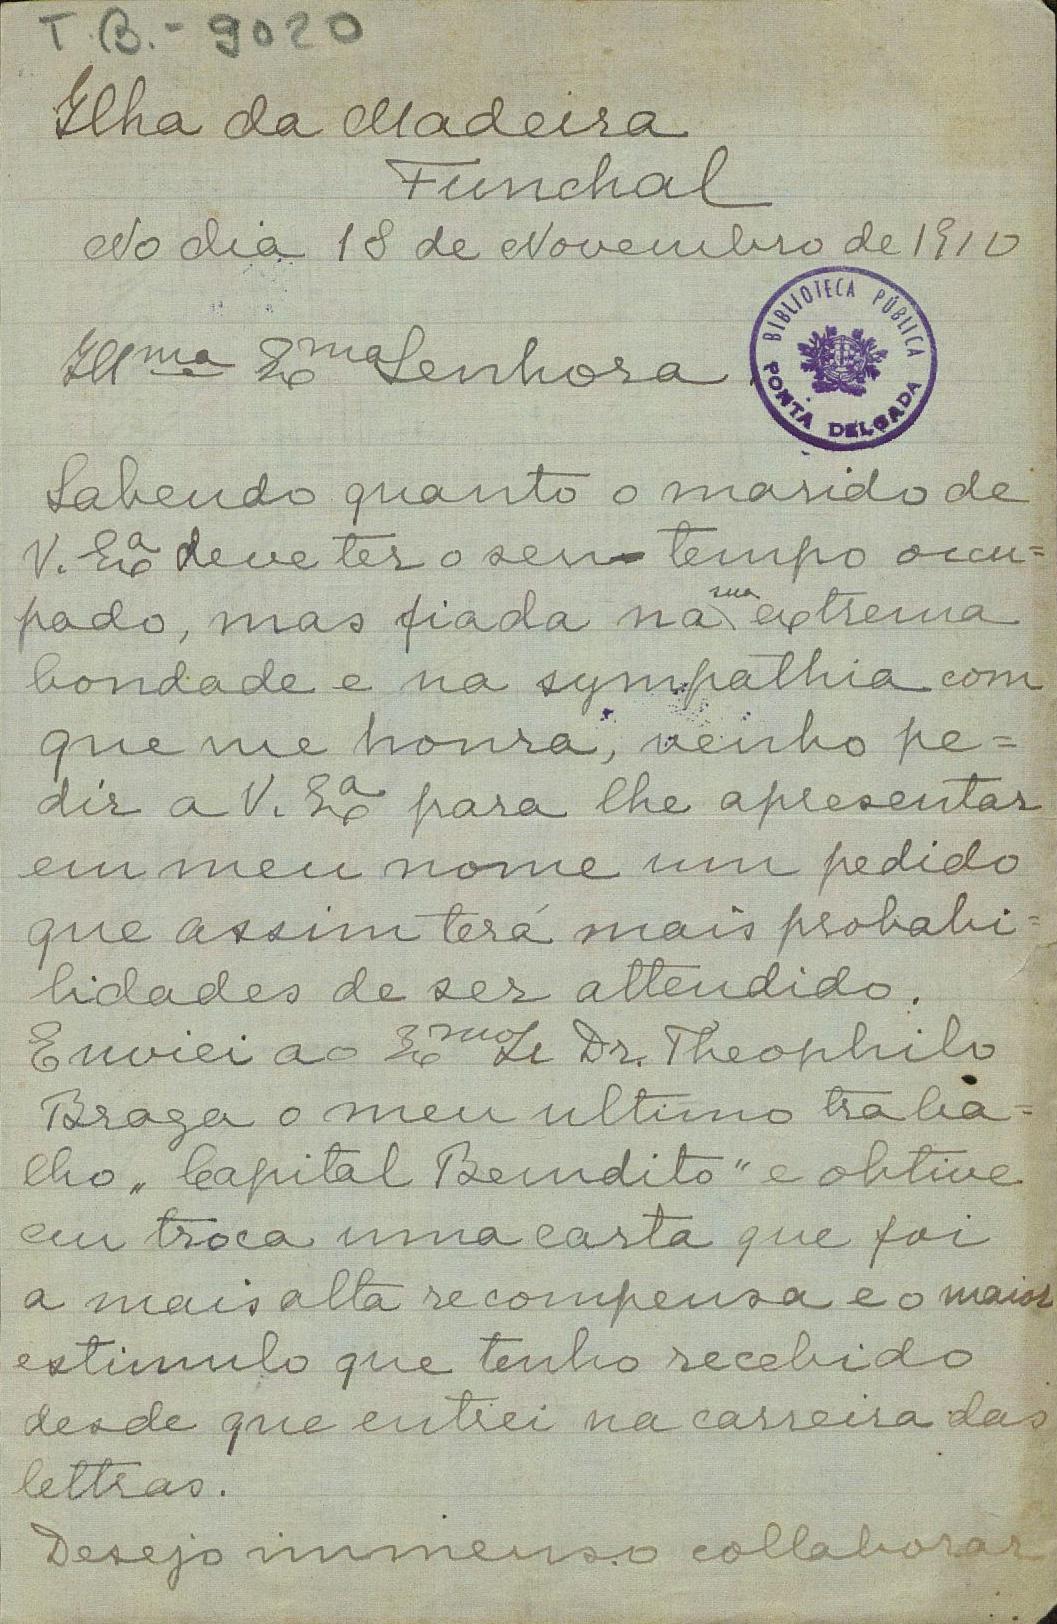 T.B.- 9020
Ilha da Madeira
Funchal
No dia 18 de Novembro de 1910
Ill.ma Ex.ma Senhora
BIBLIOTECA PÚBLICA
PONTA DELGADA
Sabendo quanto o marido de
V. Ex.a deve ter o seu tempo occu=
pado, mas fiada na sua extrema
bondade e na sympathia com
que me honra, venho pe=
dir a V. Ex.a para lhe apresentar
em meu nome um pedido
que assim terá mais probabi=
lidades de ser attendido.
Enviei ao Ex.mo Sr Dr. Theophilo
Braga o meu ultimo traba=
lho „Capital Bemdito" e obtive
em troca uma carta que foi
a mais alta recompensa e o maior
estimulo que tenho recebido
desde que entrei na carreira das
lettras.
Desejo immenso collaborar